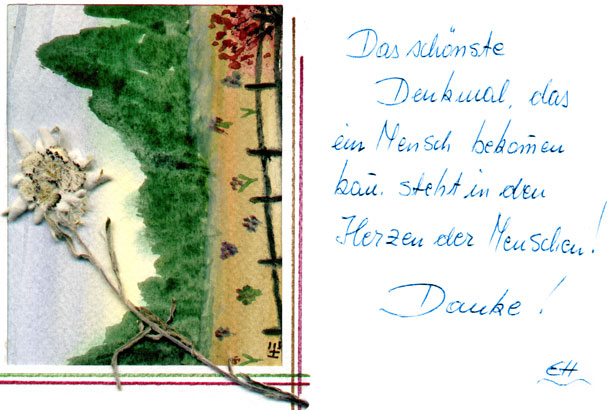 Das schönste
Denkmal, das
ein Mensch bekom̄en
kan̄. steht in den
Herzen der Menschen!
Danke!
EH
EH